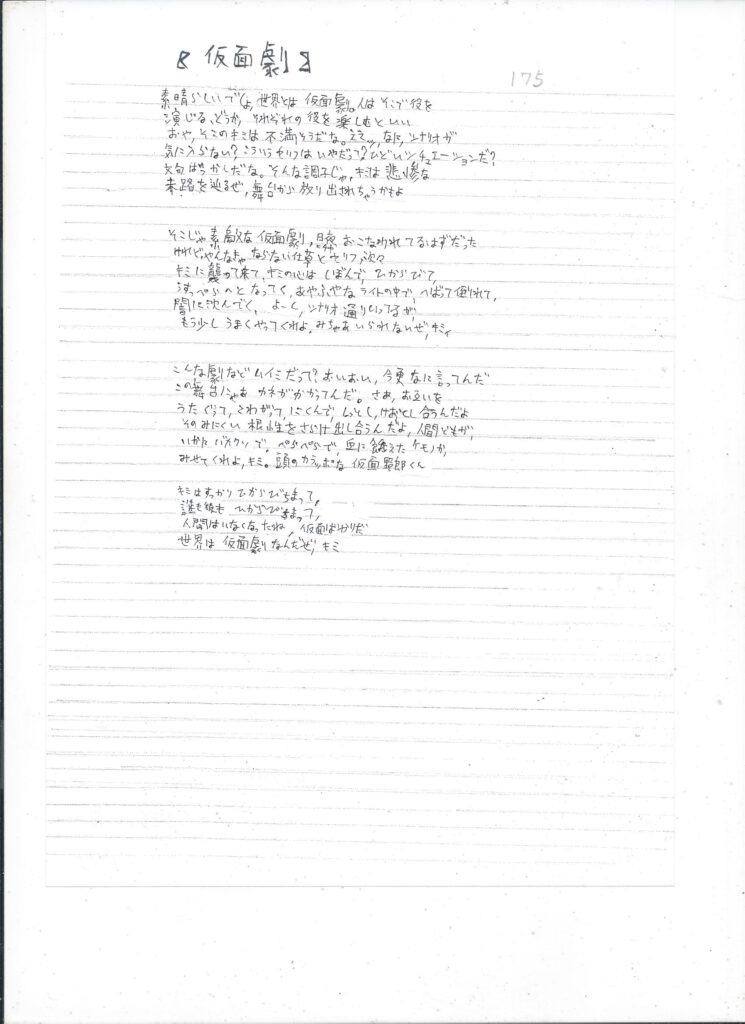 『仮面劇』
175
素晴らしいでしょ、世界とは仮面劇。人はそこで役を
演じる、どうか、それぞれの役を楽しむといい
おや、そこのキミは不満そうだな。ええッ、なに、シナリオが
気に入らない？こういうセリフはいやだって？ひどいシチュエーションだ？
文句ばっかしだな。そんな調子じゃ、キミは悲惨な
末路を辿るぜ、舞台から放り出されちゃうかもよ
そこじゃ素敵な仮面劇、おこなわれてるはずだった
けれど、やんなきゃならない仕事とセリフ、次々
キミに襲って来て、キミの心はしぼんで、ひからびて、
うすっぺらへとなってく、あやふやなライトの中で、へばって倒れて、
闇に沈んでく、よーく、シナリオ通りいってるが、
もう少しうまくやってくれよ、みちゃあいられないぜ、キミィ
こんな劇などムイミだって？おいおい、今更なに言ってんだ
この舞台にゃあカネがかかってんだ。さあ、お互いを
うたぐって、にくんで、しっとし、けおとし合うんだよ
そのみにくい根性をさらけ出し合うんだよ、人間どもが、
いかにバイオレンで、ぺらぺらで、血に餓えたケモノか、
みせてくれよ、キミ。頭のカラッポな仮面野郎くん
キミはすっかりひからびちまって、
誰も彼もひからびちまって、
人間はいなくなったね、仮面ばかりだ
世界は仮面劇なんだぜ、キミ